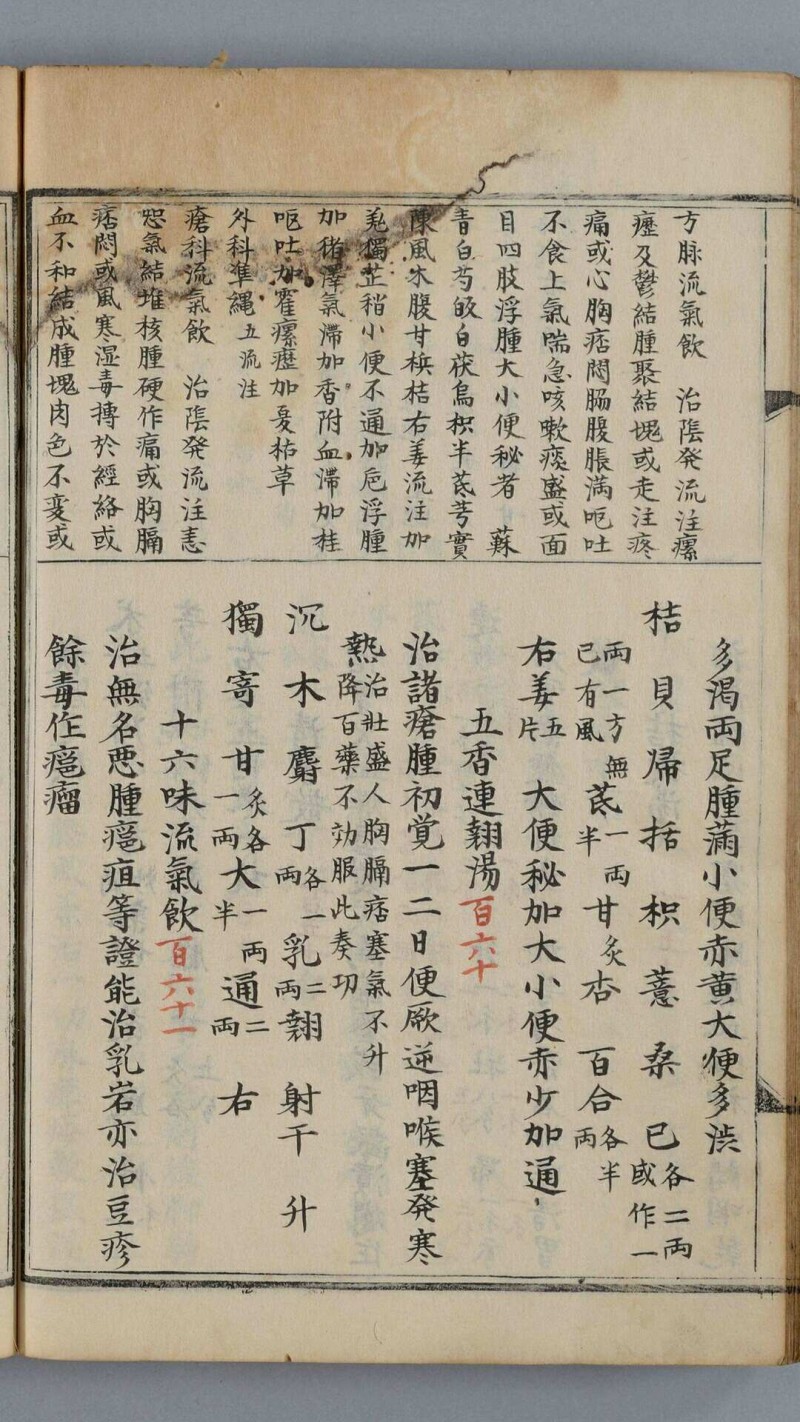 方脉流氣飲　治陰発流注瘰
癧及鬱結腫聚結塊或走注疼
痛或心胸痞悶腸腹脹満呕吐
不食上氣喘急咳嗽痰盛或面
目四肢浮腫大小便秘者　蘇
青白芍皎白茯烏枳半芪芎實
陳風木腹甘梹桔右姜流注加
羗獨芷稍小便不通加梔浮腫
加猪澤氣滞加香附血滞加桂
呕吐加霍瘰癧加夏枯草
外科準縄五流注
瘡科流氣飲　治陰発流注恚
怨氣結堆核腫硬作痛或胸膈
痞悶或風寒湿毒搏於經絡或
血不和結成腫塊肉色不変或
多渇両足腫満小便赤黄大便多渋
桔貝帰括枳薏桑已各二両或作一
両一方無已有風芪一両半甘炙杏百合各半両
右姜五片　大便秘加大小便赤少加通
五香連翹湯百六十
治諸瘡腫初覚一二日便厥逆咽喉塞発寒
熱治壮盛人胸膈痞塞氣不升降百藥不効服此奏功
沉木麝丁各一両乳二両翹射干升
獨寄甘炙各一両大一両半通二両右
十六味流氣飲百六十一
治無名悪腫癰疽等證能治乳岩亦治豆疹
餘毒作癰瘤